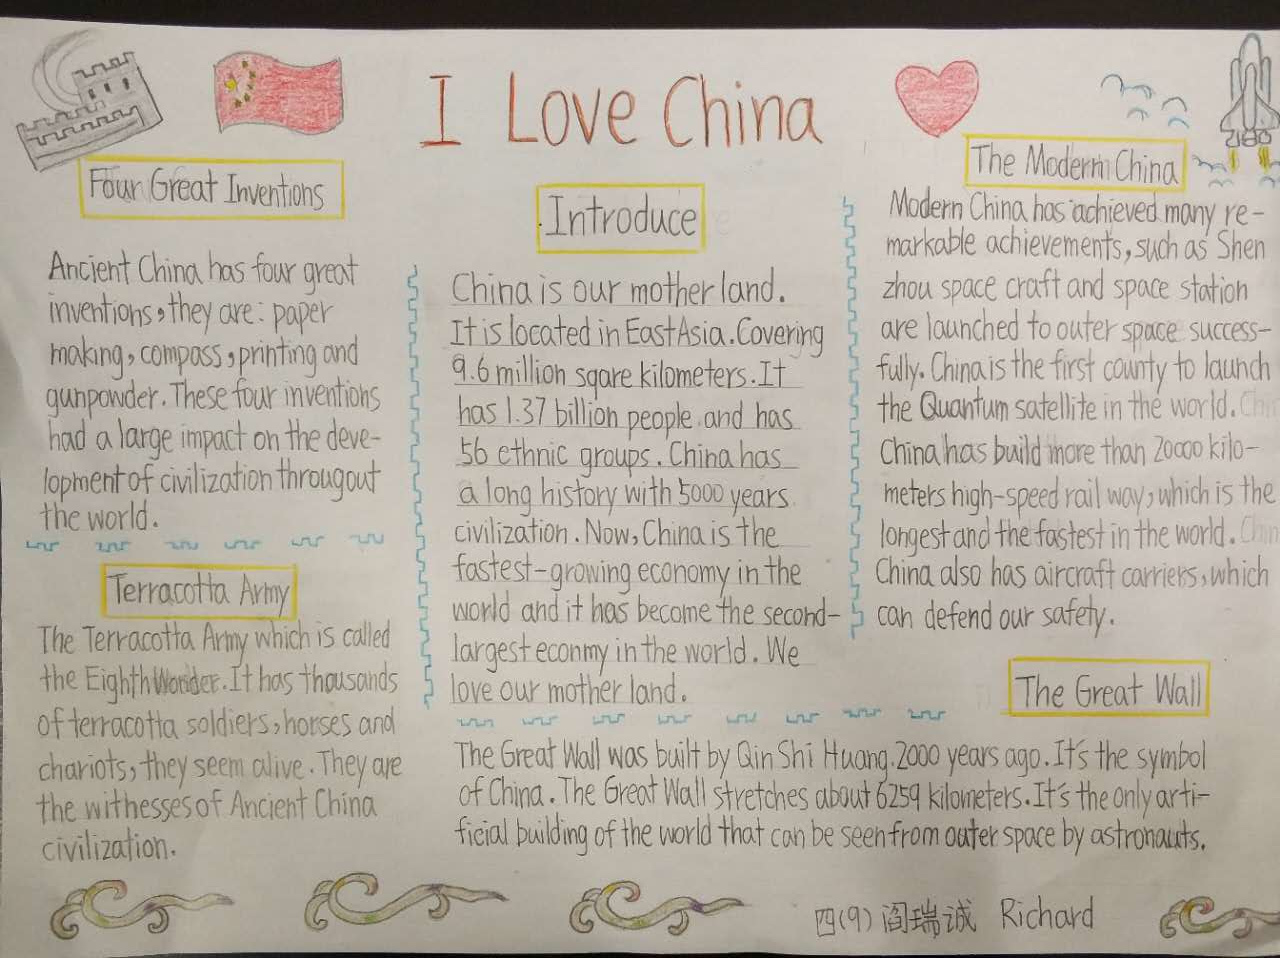 I Love China
Four Great Inventions
Ancient China has four great
inventions, they are: paper
making, compass, printing and
gunpowder. These four inventions
had a large impact on the deve-
lopment of civilization througout
the world.
Terracotta Army
The Terracotta Army which is called
the Eighth Wonder. It has thousands
of terracotta soldiers, horses and
chariots, they seem alive. They are
the withesses of Ancient China
civilization.
Introduce
China is our mother land.
It is located in East Asia. Covering
9.6 million sqare kilometers. It
has 1.37 billion people and has
56 ethnic groups. China has
a long history with 5000 years
civilization. Now, China is the
fastest-growing economy in the
world and it has become the second-
largest econmy in the world. We
love our mother land.
The Modern China
Modern China has achieved many re-
markable achievements, such as Shen
zhou space craft and space station
are launched to outer space success-
fully. China is the first county to launch
the Quantum satellite in the world.
China has build more than 20000 kilo-
meters high-speed rail way, which is the
longest and the fastest in the world.
China also has aircraft carriers, which
can defend our safety.
The Great Wall
The Great Wall was built by Qin Shi Huang. 2000 years ago. It's the symbol
of China. The Great Wall stretches about 6259 kilometers. It's the only arti-
ficial building of the world that can be seen from outer space by astronauts.
四(9) 阎瑞诚 Richard